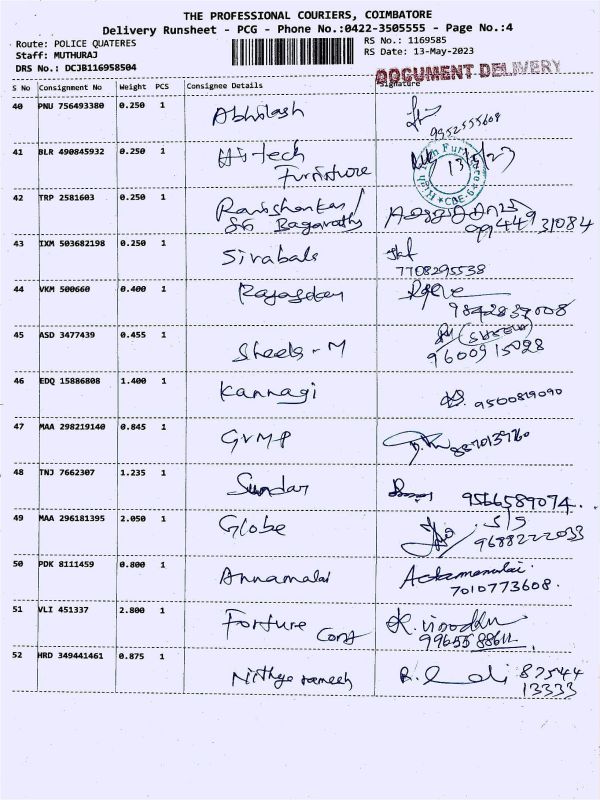 THE PROFESSIONAL COURIERS, COIMBATORE
Delivery Runsheet - PCG - Phone No.:0422-3505555 - Page No.:4
Route: POLICE QUATERES
RS No.: 1169585
Staff: MUTHURAJ
RS Date: 13-May-2023
DRS No.: DCJB116958504
DOCUMENT DELIVERY
S No Consignment No Weight PCS Consignee Details Signature
40 PNU 756493380 0.250 1 Abhilash
9952555608
41 BLR 490845932 0.250 1 Hi-tech
Furniture
13/5/23
CBE-6
42 TRP 2581603 0.250 1 Ravishankar/
Bagarathy
99449 31084
43 IXM 503682198 0.250 1 Sivabala
7708295538
44 VKM 500660 0.400 1
9842837008
45 ASD 3477439 0.455 1 Sheela-M
(SHEELA)
9600915028
46 EDQ 15886808 1.400 1 Kannagi
9500819090
47 MAA 298219140 0.845 1 GVMP
8870139760
48 TNJ 7662307 1.235 1 Sundar
9566589074.
49 MAA 296181395 2.050 1 Globe
9688222033
50 PDK 8111459 0.800 1 Annamalai
7010773608.
51 VLI 451337 2.800 1 Fortune
Const
K.
52 HRD 349441461 0.875 1 Nithya ramesh
R.
87544
13333